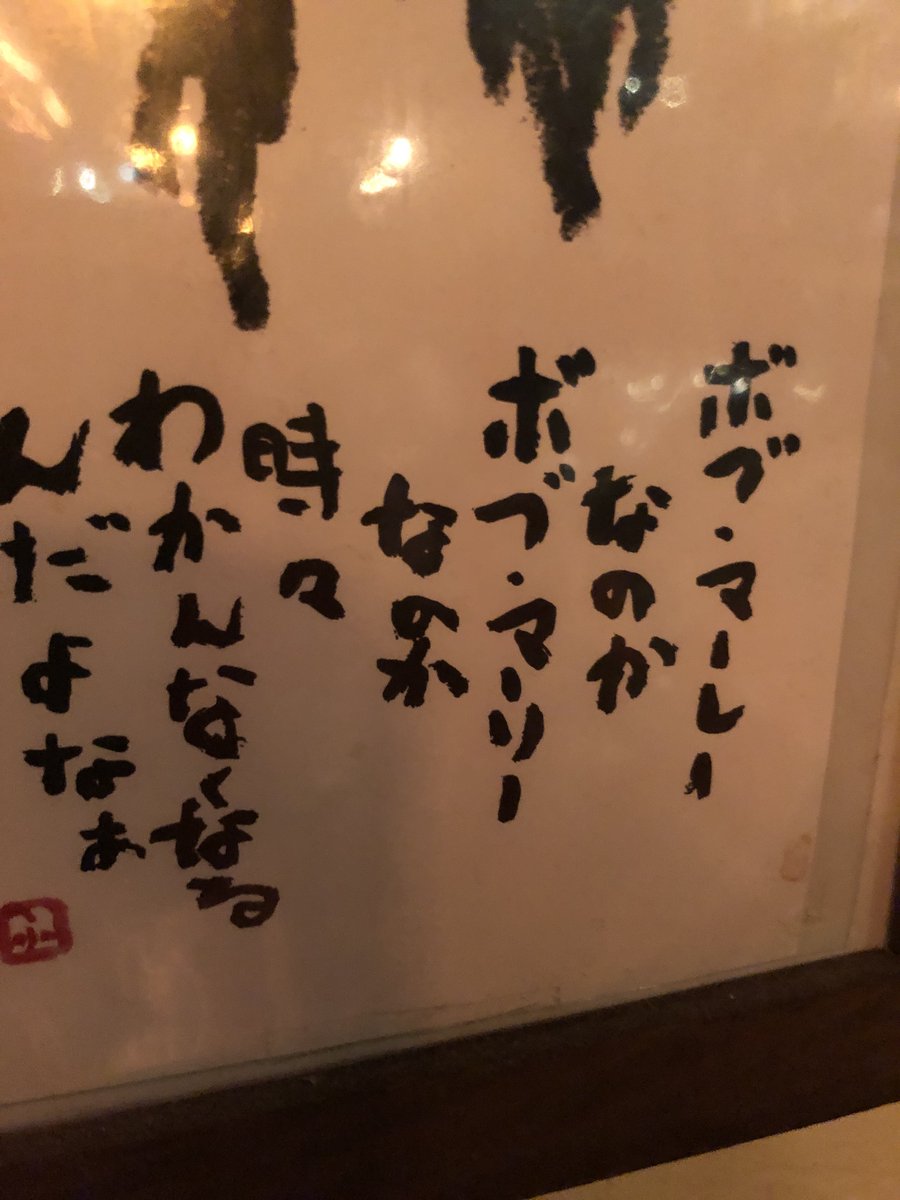 ボブ・マーレー
なのか
ボブ・マーリー
なのか
時々
わかんなくなる
んだよなぁ